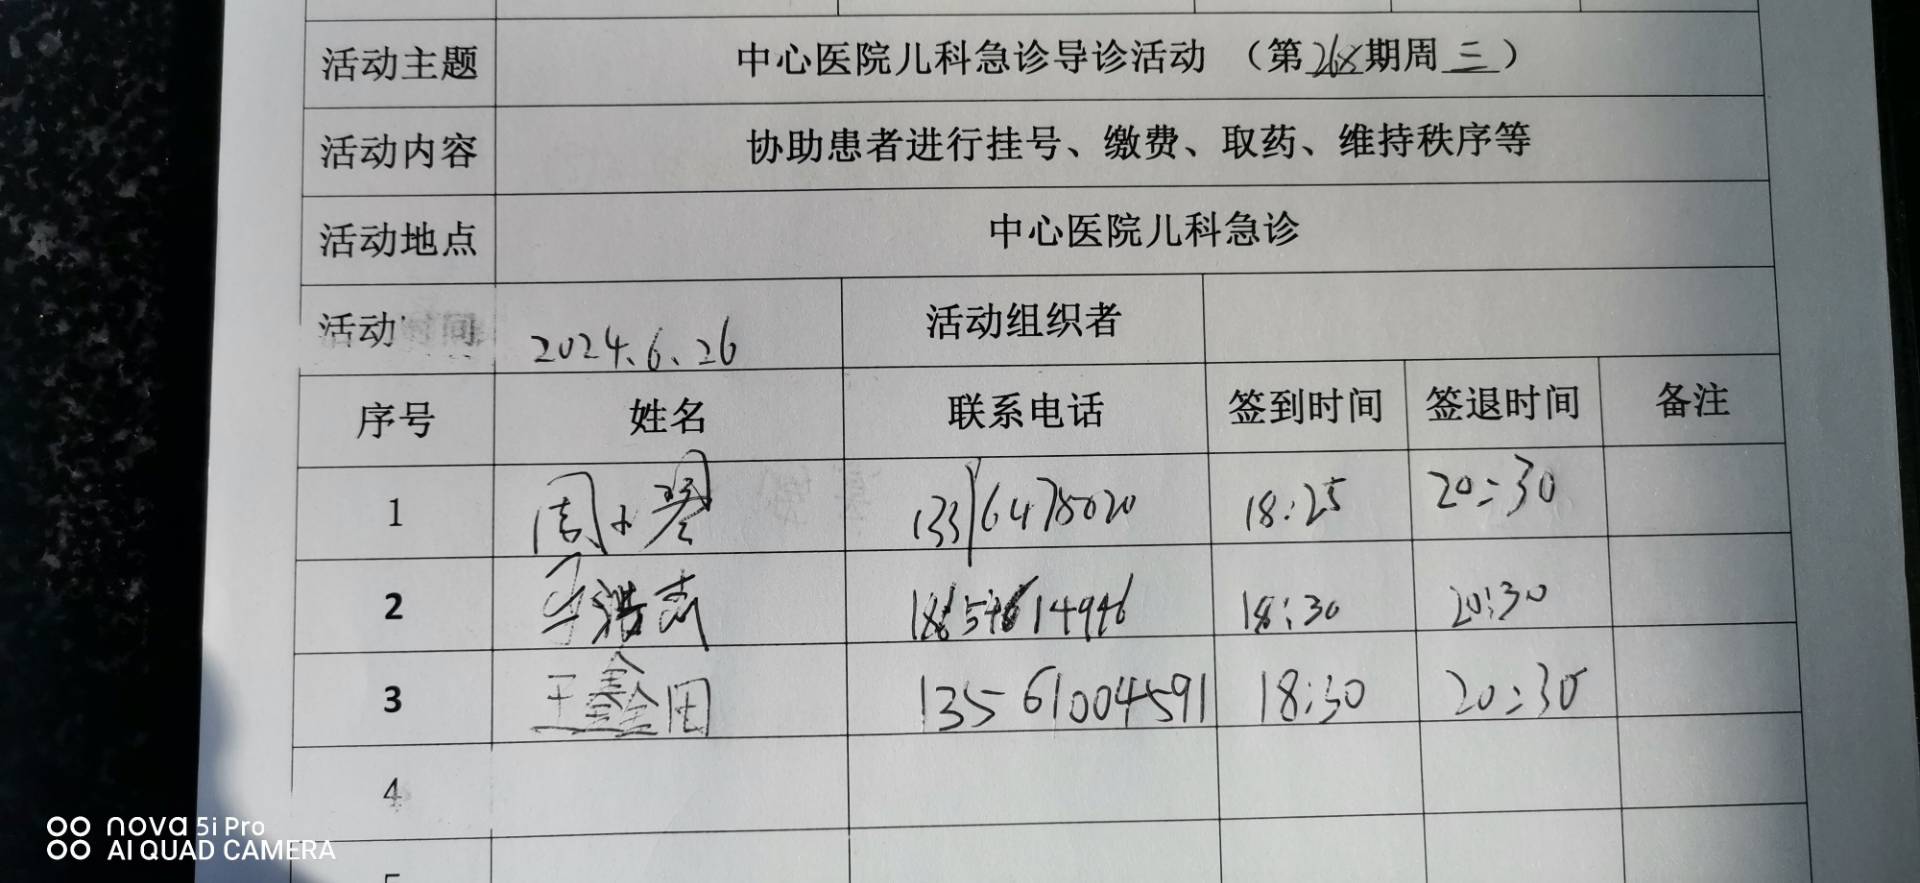 活动主题 中心医院儿科急诊导诊活动 （第268期周三）
活动内容 协助患者进行挂号、缴费、取药、维持秩序等
活动地点 中心医院儿科急诊
活动时间 2024.6.26 活动组织者
序号 姓名 联系电话 签到时间 签退时间 备注
1 周小琴 13316478020 18:25 20:30
2 18:30 20:30
3 王鑫田 13561004591 18:30 20:30
4
nova 5i Pro
AI QUAD CAMERA